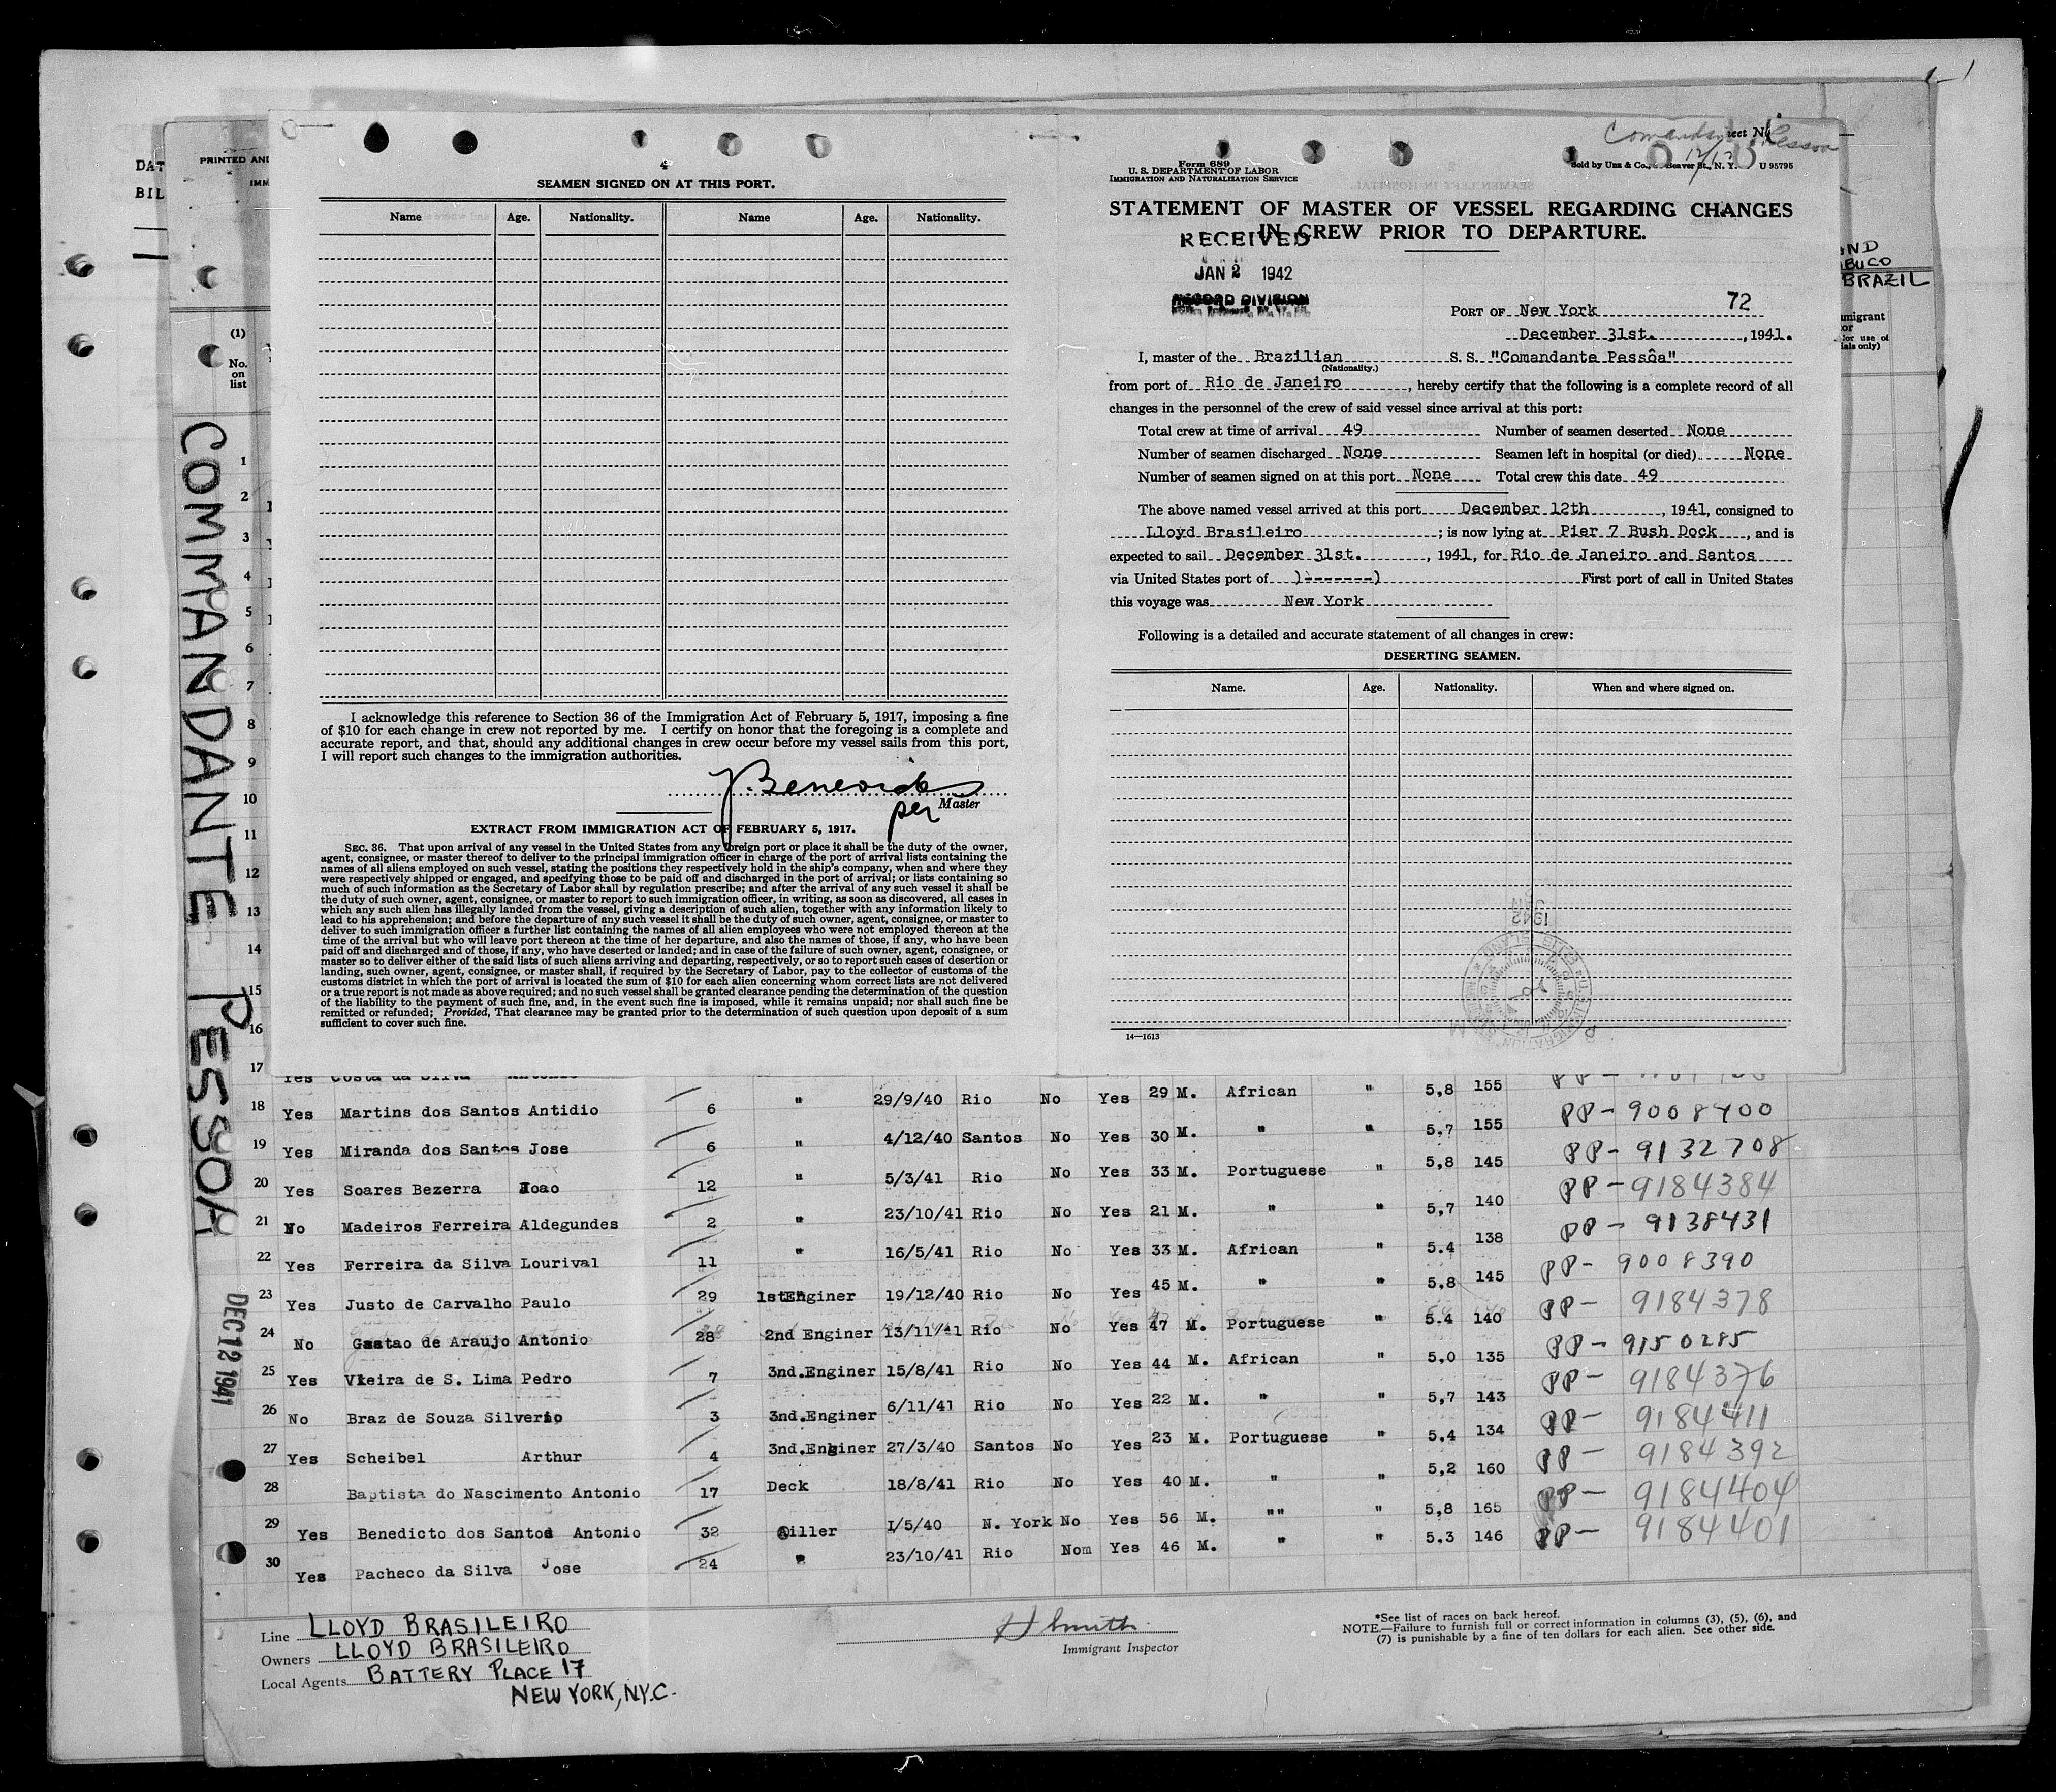 DAT
BIL
PRINTED AND
IMM
(1)
No.
on
list
COMMANDANTE PESSOA
DEC 12 1941
4
SEAMEN SIGNED ON AT THIS PORT.
Name Age. Nationality. Name Age. Nationality.
I acknowledge this reference to Section 36 of the Immigration Act of February 5, 1917, imposing a fine
of $10 for each change in crew not reported by me. I certify on honor that the foregoing is a complete and
accurate report, and that, should any additional changes in crew occur before my vessel sails from this port,
I will report such changes to the immigration authorities.
per Master
EXTRACT FROM IMMIGRATION ACT OF FEBRUARY 5, 1917.
SEC. 36. That upon arrival of any vessel in the United States from any foreign port or place it shall be the duty of the owner,
agent, consignee, or master thereof to deliver to the principal immigration officer in charge of the port of arrival lists containing the
names of all aliens employed on such vessel, stating the positions they respectively hold in the ship's company, when and where they
were respectively shipped or engaged, and specifying those to be paid off and discharged in the port of arrival; or lists containing so
much of such information as the Secretary of Labor shall by regulation prescribe; and after the arrival of any such vessel it shall be
the duty of such owner, agent, consignee, or master to report to such immigration officer, in writing, as soon as discovered, all cases in
which any such alien has illegally landed from the vessel, giving a description of such alien, together with any information likely to
lead to his apprehension; and before the departure of any such vessel it shall be the duty of such owner, agent, consignee, or master to
deliver to such immigration officer a further list containing the names of all alien employees who were not employed thereon at the
time of the arrival but who will leave port thereon at the time of her departure, and also the names of those, if any, who have been
paid off and discharged and of those, if any, who have deserted or landed; and in case of the failure of such owner, agent, consignee, or
master so to deliver either of the said lists of such aliens arriving and departing, respectively, or so to report such cases of desertion or
landing, such owner, agent, consignee, or master shall, if required by the Secretary of Labor, pay to the collector of customs of the
customs district in which the port of arrival is located the sum of $10 for each alien concerning whom correct lists are not delivered
or a true report is not made as above required; and no such vessel shall be granted clearance pending the determination of the question
of the liability to the payment of such fine, and, in the event such fine is imposed, while it remains unpaid; nor shall such fine be
remitted or refunded; Provided, That clearance may be granted prior to the determination of such question upon deposit of a sum
sufficient to cover such fine.
Form 689
U. S. DEPARTMENT OF LABOR
IMMIGRATION AND NATURALIZATION SERVICE
Sold by Unz & Co., Beaver St., N. Y. U 95795
STATEMENT OF MASTER OF VESSEL REGARDING CHANGES
IN CREW PRIOR TO DEPARTURE.
RECEIVED
JAN 2 1942
RECORD DIVISION
72
PORT OF New York
December 31st. , 1941.
I, master of the Brazilian S. S. "Comandante Pessôa"
(Nationality.)
from port of Rio de Janeiro , hereby certify that the following is a complete record of all
changes in the personnel of the crew of said vessel since arrival at this port:
Total crew at time of arrival 49 Number of seamen deserted None
Number of seamen discharged None Seamen left in hospital (or died) None
Number of seamen signed on at this port None Total crew this date 49
The above named vessel arrived at this port December 12th , 1941, consigned to
Lloyd Brasileiro ; is now lying at Pier 7 Bush Dock , and is
expected to sail December 31st. , 1941, for Rio de Janeiro and Santos
via United States port of )-------) First port of call in United States
this voyage was New York
Following is a detailed and accurate statement of all changes in crew:
DESERTING SEAMEN.
Name. Age. Nationality. When and where signed on.
14—1613
ND
BUCO
BRAZIL
migrant
or
for use of
ials only)
1
2
3
4
5
6
7
8
9
10
11
12
13
14
15
16
17 Yes Costa da Silva
18 Yes Martins dos Santos Antidio 6 " 29/9/40 Rio No Yes 29 M. African " 5,8 155 PP- 9008400
19 Yes Miranda dos Santos Jose 6 " 4/12/40 Santos No Yes 30 M. " " 5.7 155 PP- 9132708
20 Yes Soares Bezerra Joao 12 " 5/3/41 Rio No Yes 33 M. Portuguese " 5,8 145 PP- 9184384
21 No Madeiros Ferreira Aldegundes 2 " 23/10/41 Rio No Yes 21 M. " " 5,7 140 PP- 9138431
22 Yes Ferreira da Silva Lourival 11 " 16/5/41 Rio No Yes 33 M. African " 5.4 138 PP- 9008390
23 Yes Justo de Carvalho Paulo 29 1st Enginer 19/12/40 Rio No Yes 45 M. " " 5.8 145 PP- 9184378
24 No Gastao de Araujo Antonio 28 2nd Enginer 13/11/41 Rio No Yes 47 M. Portuguese " 5.4 140 PP- 9150285
25 Yes Vieira de S. Lima Pedro 7 3nd.Enginer 15/8/41 Rio No Yes 44 M. African " 5.0 135 PP- 9184376
26 No Braz de Souza Silverio 3 3nd.Enginer 6/11/41 Rio No Yes 22 M. " " 5,7 143 PP- 9184411
27 Yes Scheibel Arthur 4 3nd.Enginer 27/3/40 Santos No Yes 23 M. Portuguese " 5,4 134 PP- 9184392
28 Baptista do Nascimento Antonio 17 Deck 18/8/41 Rio No Yes 40 M. " " 5,2 160 PP- 9184404
29 Yes Benedicto dos Santos Antonio 32 Oiller I/5/40 N. York No Yes 56 M. "" " 5,8 165 PP- 9184401
30 Yes Pacheco da Silva Jose 24 " 23/10/41 Rio Nom Yes 46 M. " " 5.3 146
Line LLOYD BRASILEIRO
Owners LLOYD BRASILEIRO
Local Agents BATTERY PLACE 17
NEW YORK, N.Y.C.
H Smith
Immigrant Inspector
*See list of races on back hereof.
NOTE.—Failure to furnish full or correct information in columns (3), (5), (6), and
(7) is punishable by a fine of ten dollars for each alien. See other side.